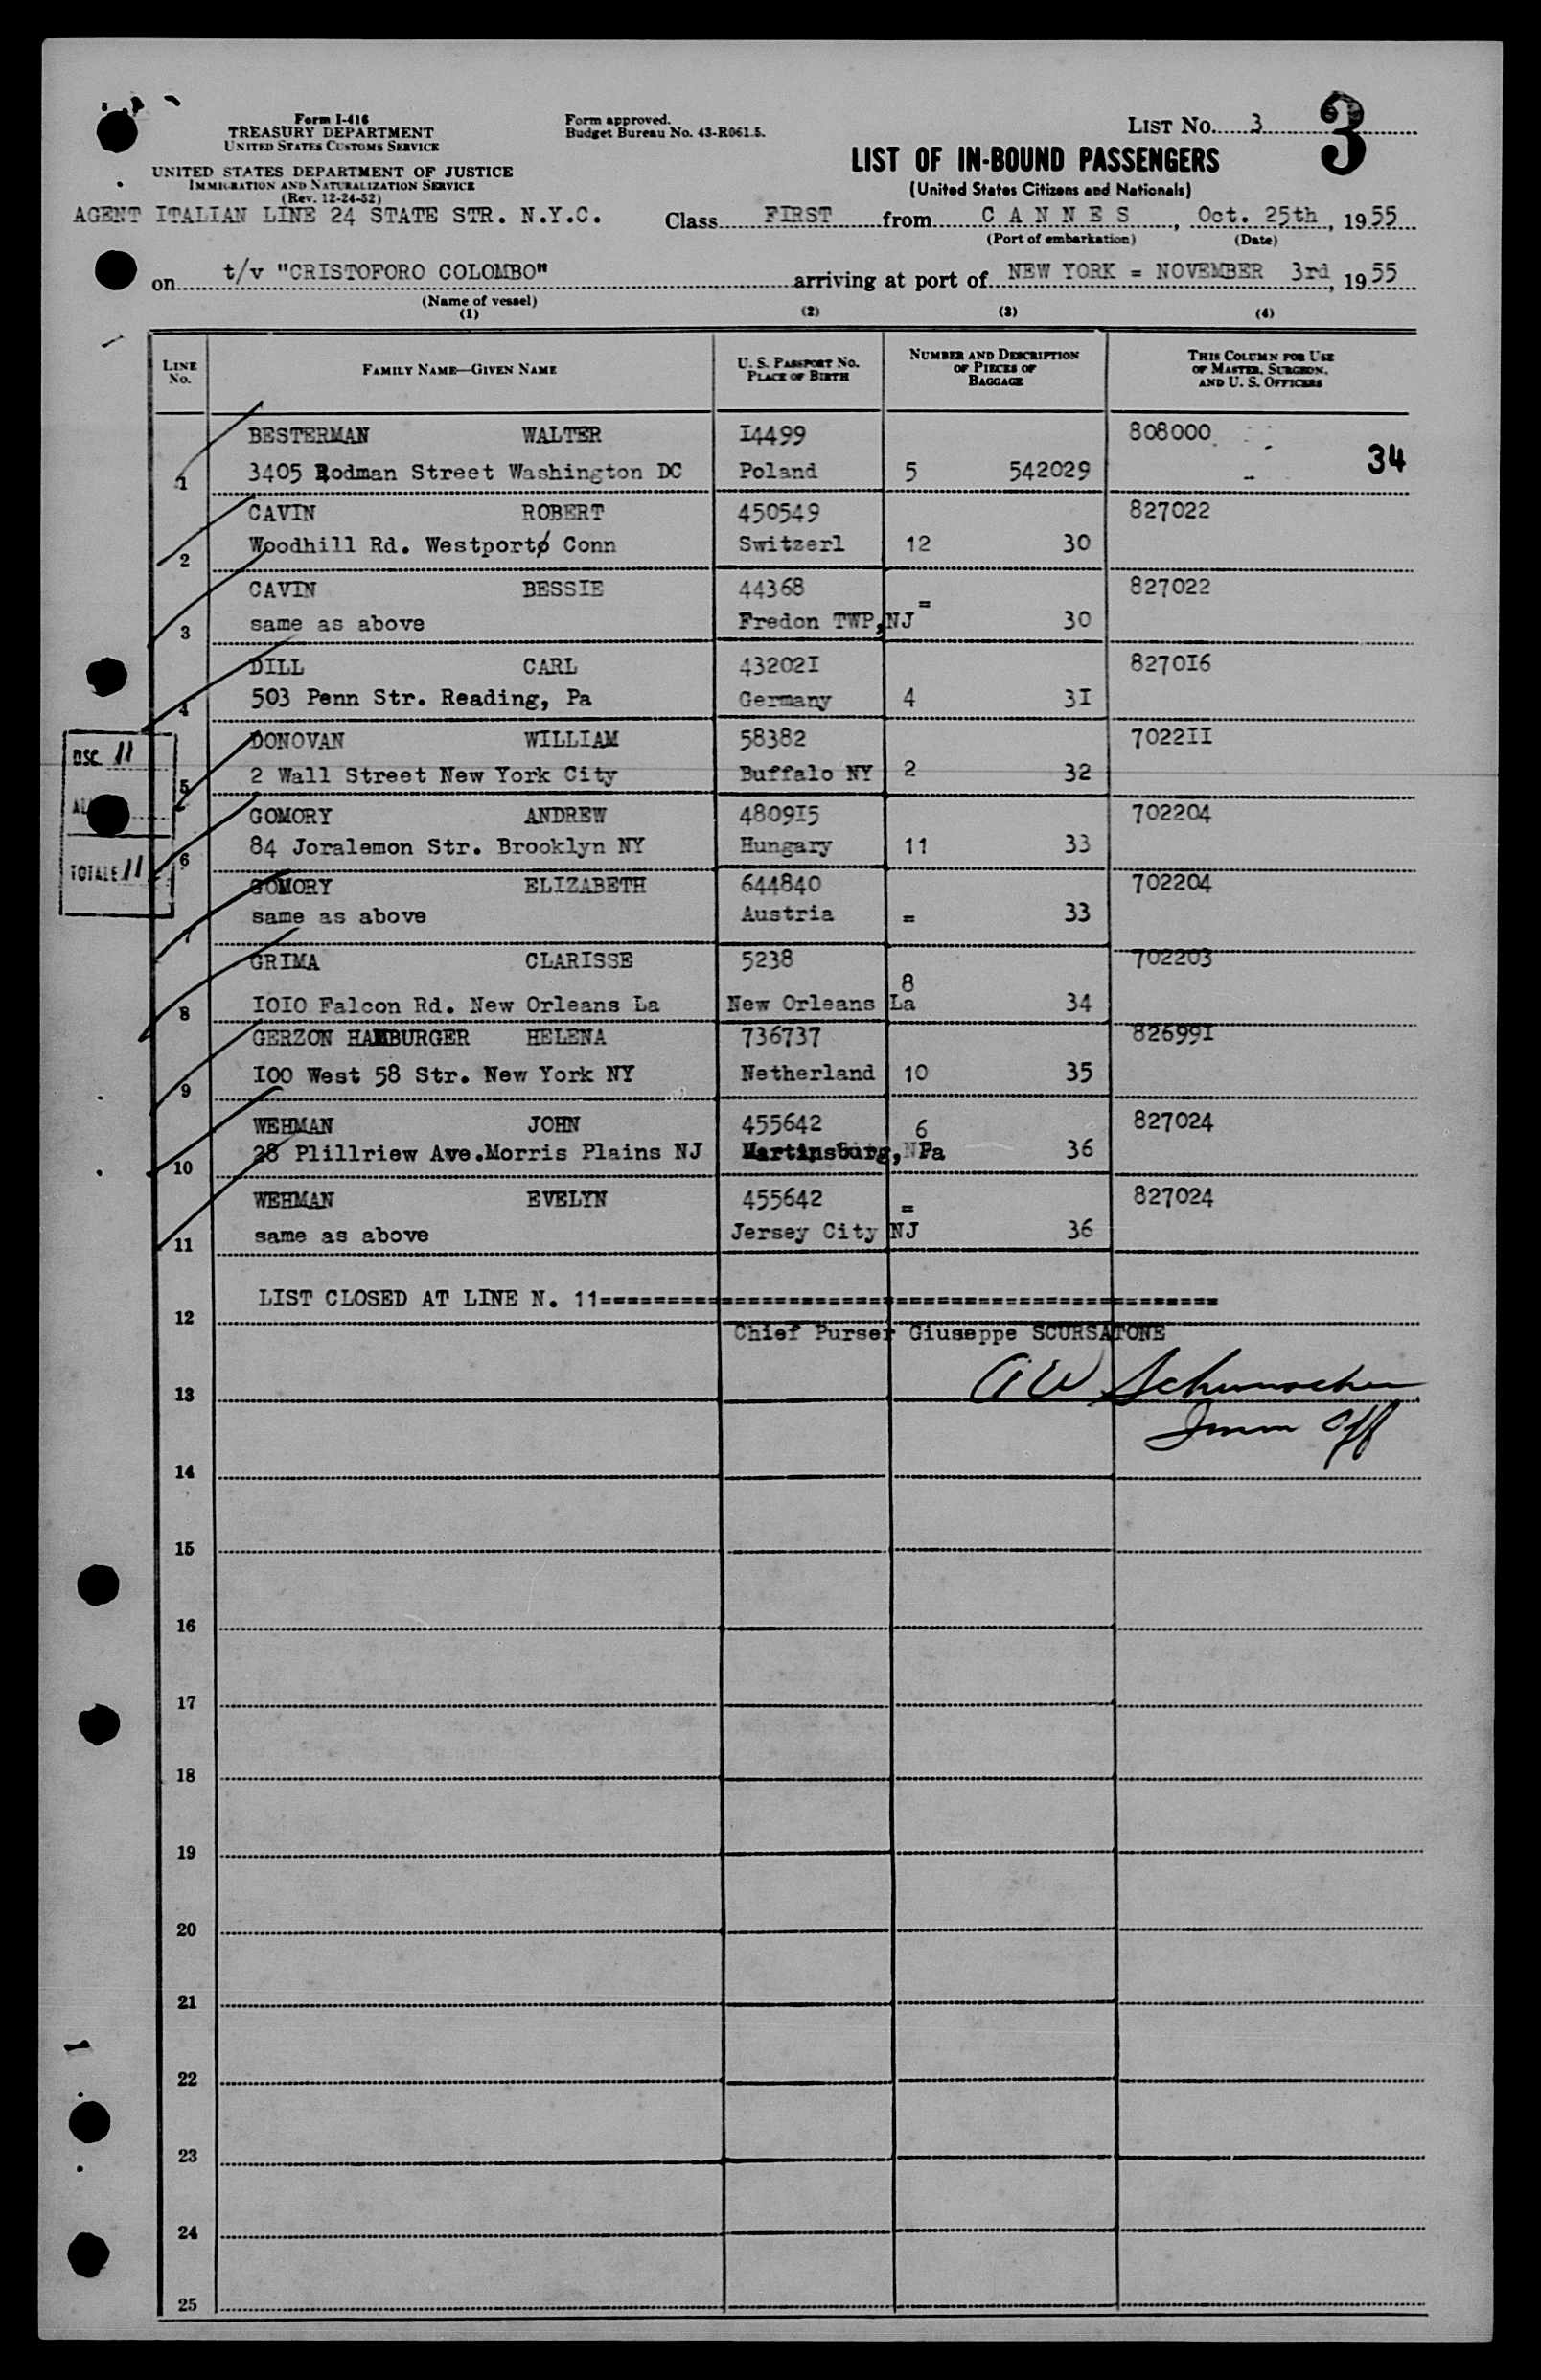 Form I-416
TREASURY DEPARTMENT
UNITED STATES CUSTOMS SERVICE
UNITED STATES DEPARTMENT OF JUSTICE
IMMIGRATION AND NATURALIZATION SERVICE
(Rev. 12-24-52)
AGENT ITALIAN LINE 24 STATE STR. N.Y.C.
Form approved.
Budget Bureau No. 43-R061.5.
LIST No. 3
3
LIST OF IN-BOUND PASSENGERS
(United States Citizens and Nationals)
Class FIRST from C A N N E S, Oct. 25th, 1955
(Port of embarkation) (Date)
on t/v "CRISTOFORO COLOMBO" arriving at port of NEW YORK = NOVEMBER 3rd, 1955
(Name of vessel)
(1) (2) (3) (4)
LINE No. FAMILY NAME—GIVEN NAME U. S. PASSPORT NO. PLACE OF BIRTH NUMBER AND DESCRIPTION OF PIECES OF BAGGAGE THIS COLUMN FOR USE OF MASTER, SURGEON, AND U. S. OFFICERS
BESTERMAN WALTER I4499 808000
34
1 3405 Rodman Street Washington DC Poland 5 542029
CAVIN ROBERT 450549 827022
2 Woodhill Rd. Westport Conn Switzerl 12 30
CAVIN BESSIE 44368 827022
3 same as above Fredon TWP,NJ = 30
DILL CARL 43202I 8270I6
4 503 Penn Str. Reading, Pa Germany 4 3I
DONOVAN WILLIAM 58382 7022II
5 2 Wall Street New York City Buffalo NY 2 32
GOMORY ANDREW 4809I5 702204
6 84 Joralemon Str. Brooklyn NY Hungary 11 33
GOMORY ELIZABETH 644840 702204
7 same as above Austria = 33
GRIMA CLARISSE 5238 702203
8 I0I0 Falcon Rd. New Orleans La New Orleans La 8 34
GERZON HAMBURGER HELENA 736737 82699I
9 I00 West 58 Str. New York NY Netherland 10 35
WEHMAN JOHN 455642 827024
10 28 Plillriew Ave.Morris Plains NJ Martinsburg, Pa 6 36
WEHMAN EVELYN 455642 827024
11 same as above Jersey City NJ = 36
12 LIST CLOSED AT LINE N. 11==============================================
Chief Purser Giuseppe SCURSATONE
13 A W Schumacher
Imm Off
14
15
16
17
18
19
20
21
22
23
24
25
USC 11
TOTALE 11